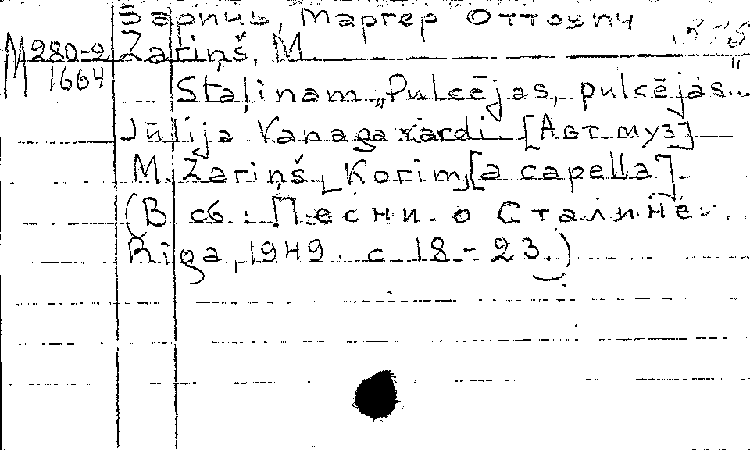 Зариць, Маргер Оттович
M 280-9 Zariņš, M
1664
Staļinam „Pulcējas, pulcējas..."
Jūlija Vanaga vārdi. [Авт. муз]
M. Zariņš, Korim, [a capella].
(В сб.: Песни о Сталине.
Rīga, 1949. с 18-23.)